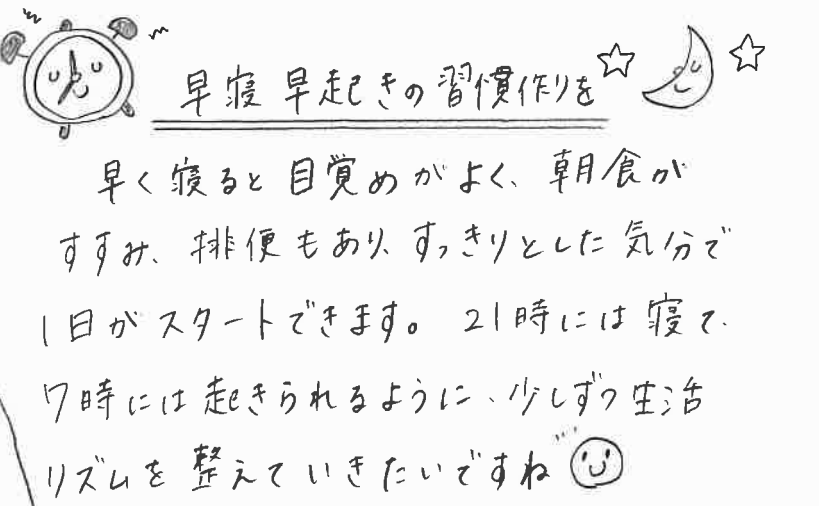 早寝早起きの習慣作りを
早く寝ると目覚めがよく、朝食が
すすみ、排便もあり、すっきりとした気分で
1日がスタートできます。21時には寝て、
7時には起きられるように、少しずつ生活
リズムを整えていきたいですね